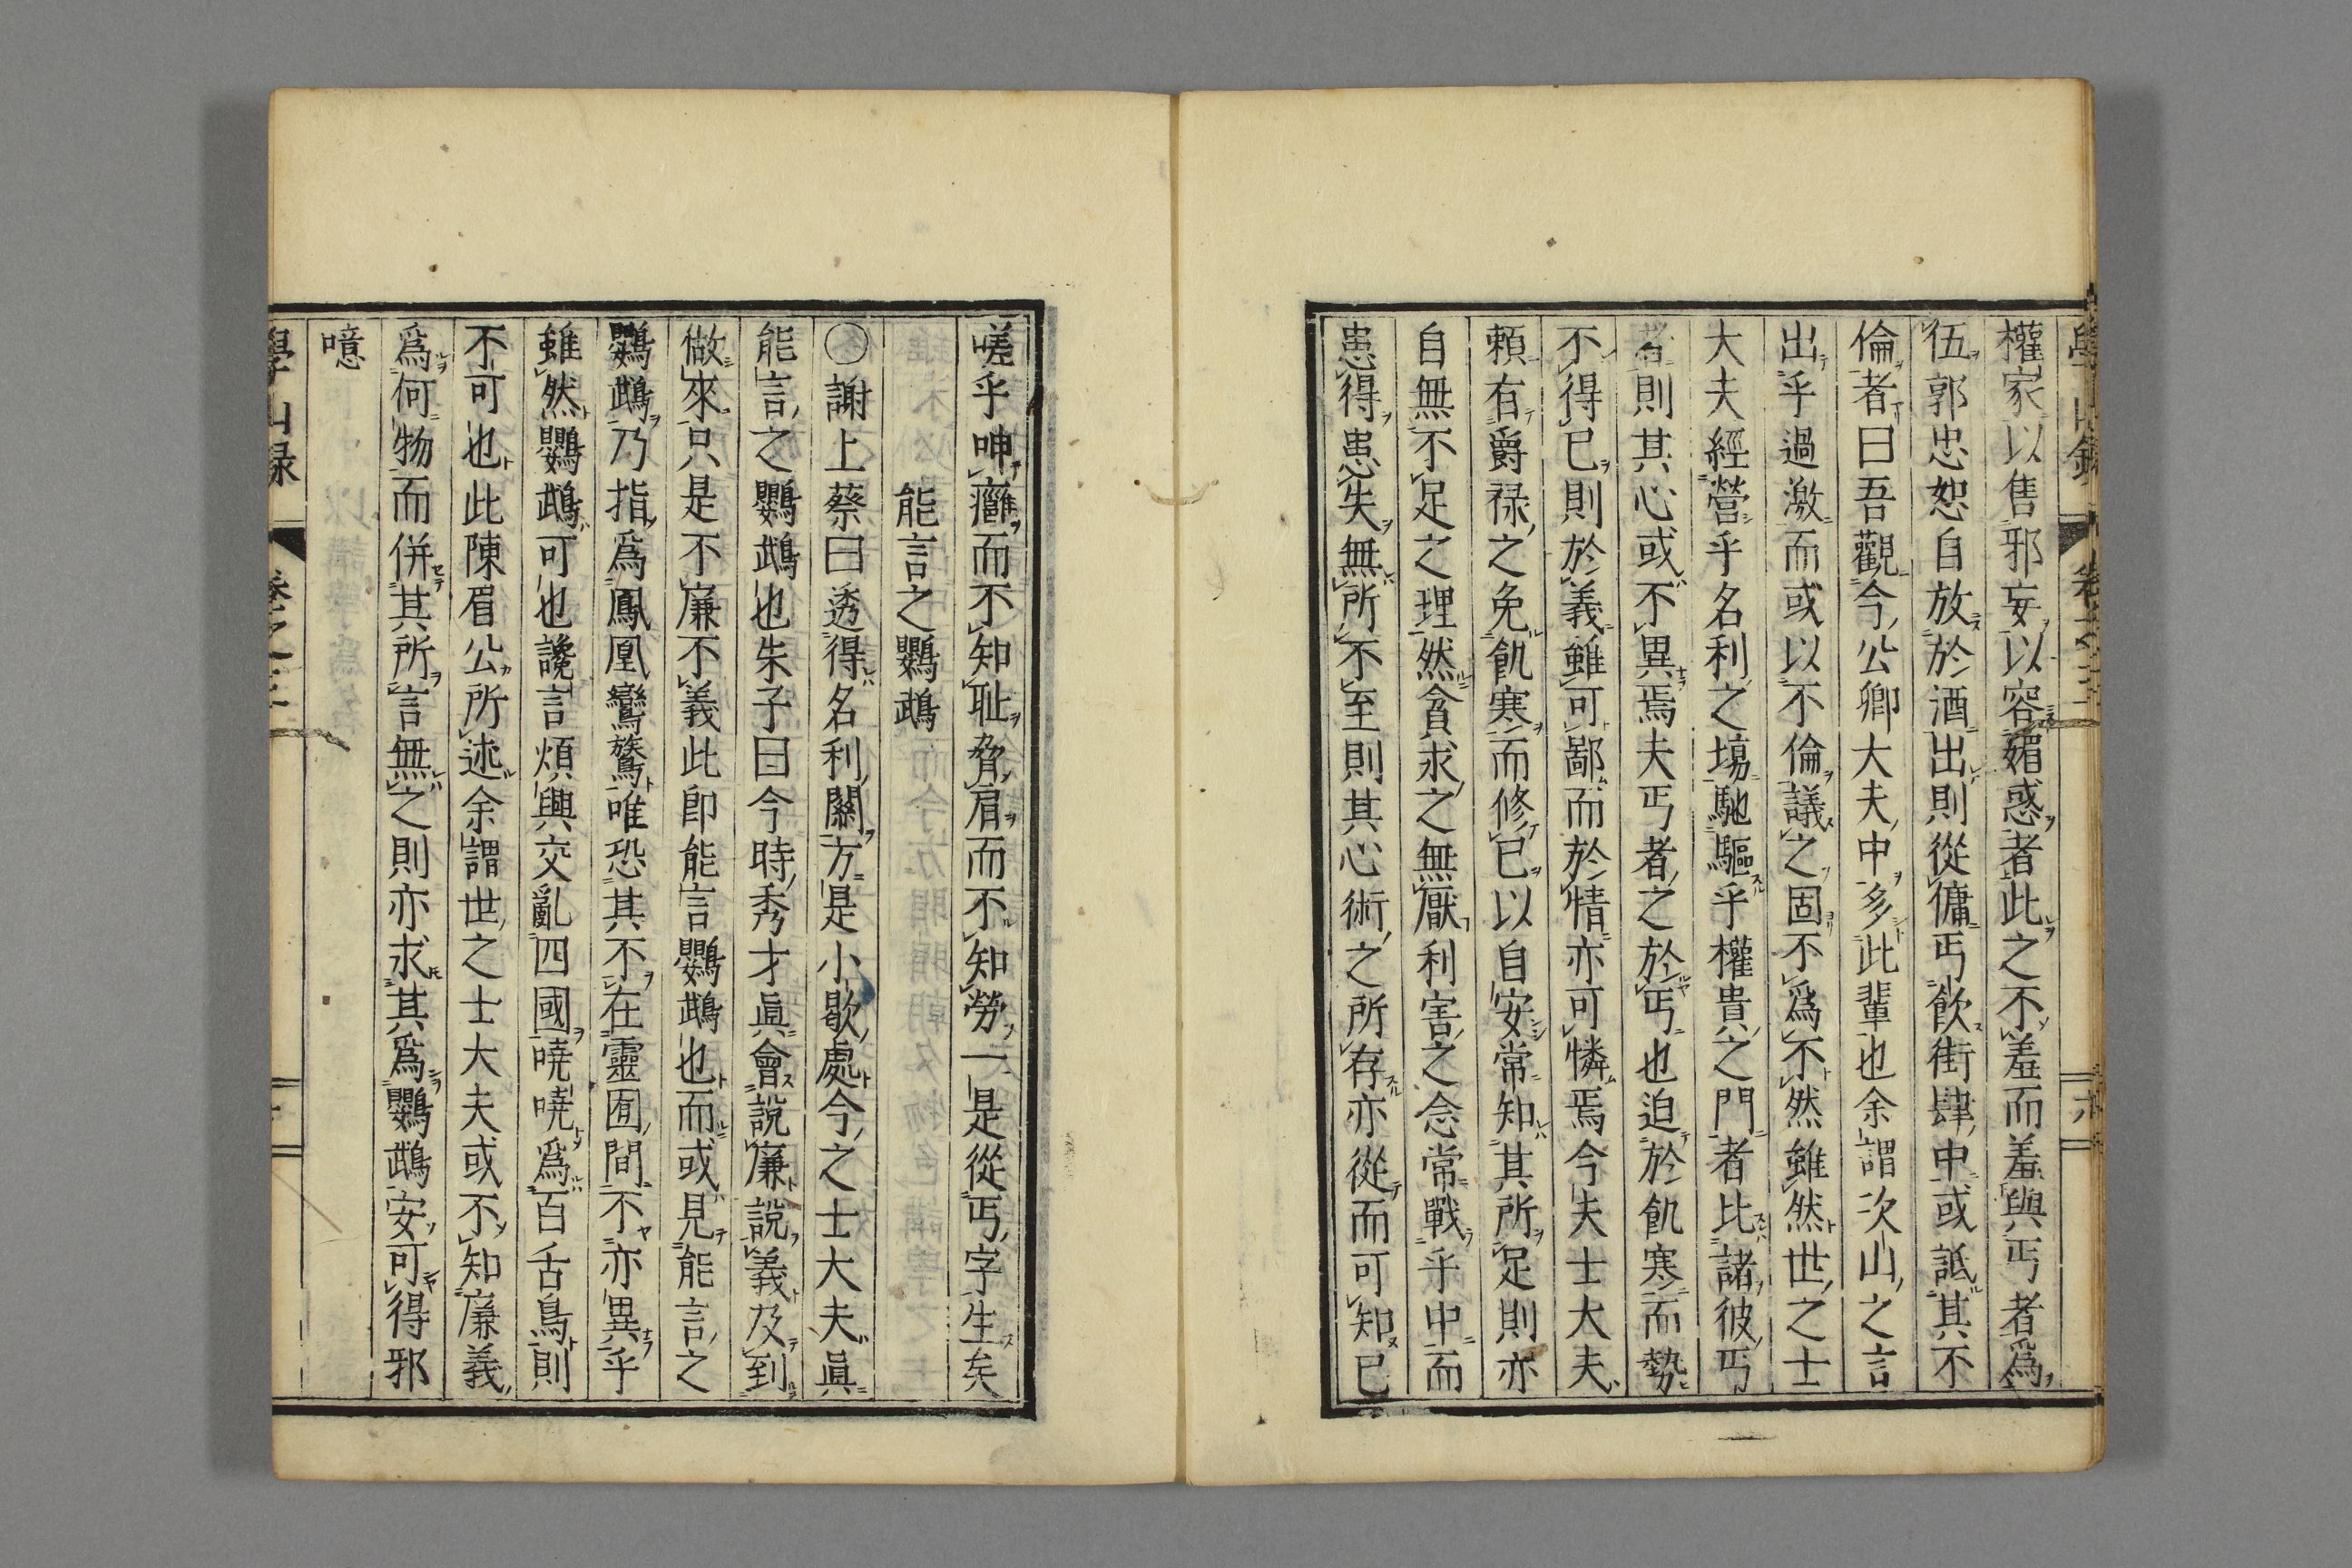 權家以售邪妄以容媚惑者此之不羞而羞與丐者爲
伍郭忠恕自放於酒出則從傭丐飲街肆中或詆其不
倫者曰吾觀今公卿大夫中多此輩也余謂次山之言
出乎過激而或以不倫議之固不爲不然雖然世之士
大夫經營乎名利之塲馳驅乎權貴之門者比諸彼丐
者則其心或不異焉夫丐者之於丐也迫於飢寒而勢
不得已則於義雖可鄙而於情亦可憐焉今夫士大夫
賴有爵祿之免飢寒而修已以自安常知其所足則亦
自無不足之理然貪求之無厭利害之念常戰乎中而
患得患失無所不至則其心術之所存亦從而可知已
嗟乎呻癰而不知耻脅肩而不知勞一是從丐字生矣
能言之鸚鵡
〇謝上蔡曰透得名利關方是小歇處今之士大夫眞
能言之鸚鵡也朱子曰今時秀才眞會說廉說義及到
做來只是不廉不義此卽能言鸚鵡也而或見能言之
鸚鵡乃指爲鳳凰鸞鷟唯恐其不在靈囿間不亦異乎
雖然鸚鵡可也讒言煩興交亂四國嘵嘵爲百舌鳥則
不可也此陳眉公所述余謂世之士大夫或不知廉義
爲何物而併其所言無之則亦求其爲鸚鵡安可得邪
噫
學山録 卷之三